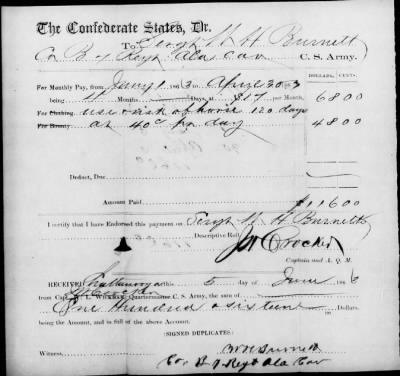 The Confederate States, Dr.
To Sergt W H Burnett
Co B 7 Regt Ala Cav C. S. Army.
DOLLARS, CENTS.
For Monthly Pay, from Jany 1 1863 to April 30 3
being 4 Months Days, at $17 per Month, 68 00
For Clothing use & risk of horse 120 days
For Bounty at 40c per day 48 00
Deduct, Due
Amount Paid $116 00
I certify that I have Endorsed this payment on Sergt W H Burnett
Descriptive Roll. Crocker
Captain and A. Q. M.
RECEIVED Chattanooga this 5 day of June 186
from Capt. Crocker W. L. WICKHAM, Quartermaster C. S. Army, the sum of
One Hundred & sixteen Dollars,
being the amount, and in full of the above Account.
(SIGNED DUPLICATES)
Witness, W H Burnett
Co B 7 Regt Ala Cav